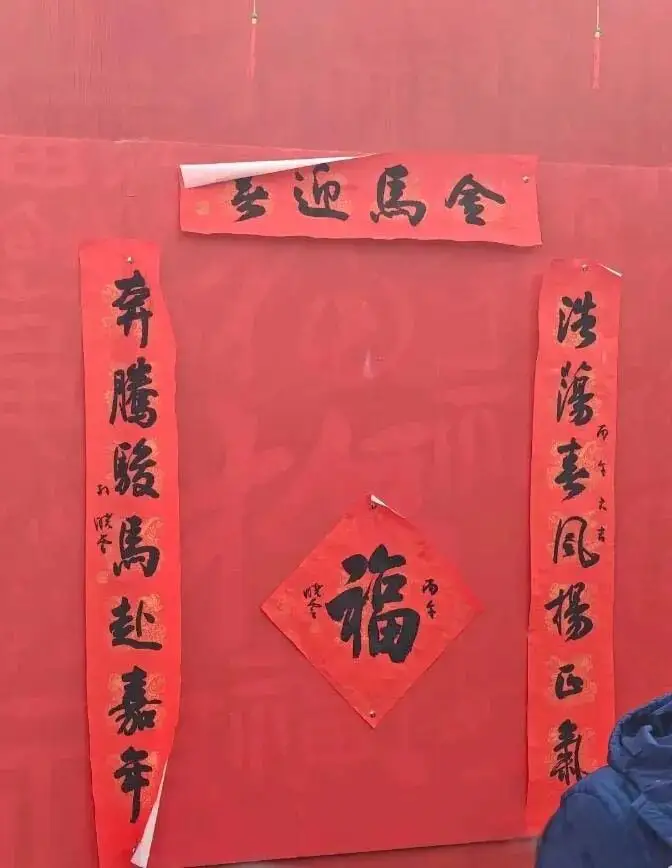 金馬迎春
浩蕩春風揚正氣
丙午大吉
奔騰駿馬赴嘉年
福
丙午